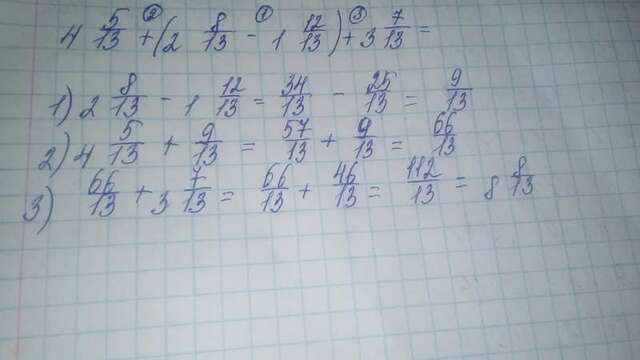 ② ① ③
4 5/13 + (2 8/13 - 1 12/13) + 3 7/13 =
1) 2 8/13 - 1 12/13 = 34/13 - 25/13 = 9/13
2) 4 5/13 + 9/13 = 57/13 + 9/13 = 66/13
3) 66/13 + 3 7/13 = 66/13 + 46/13 = 112/13 = 8 8/13